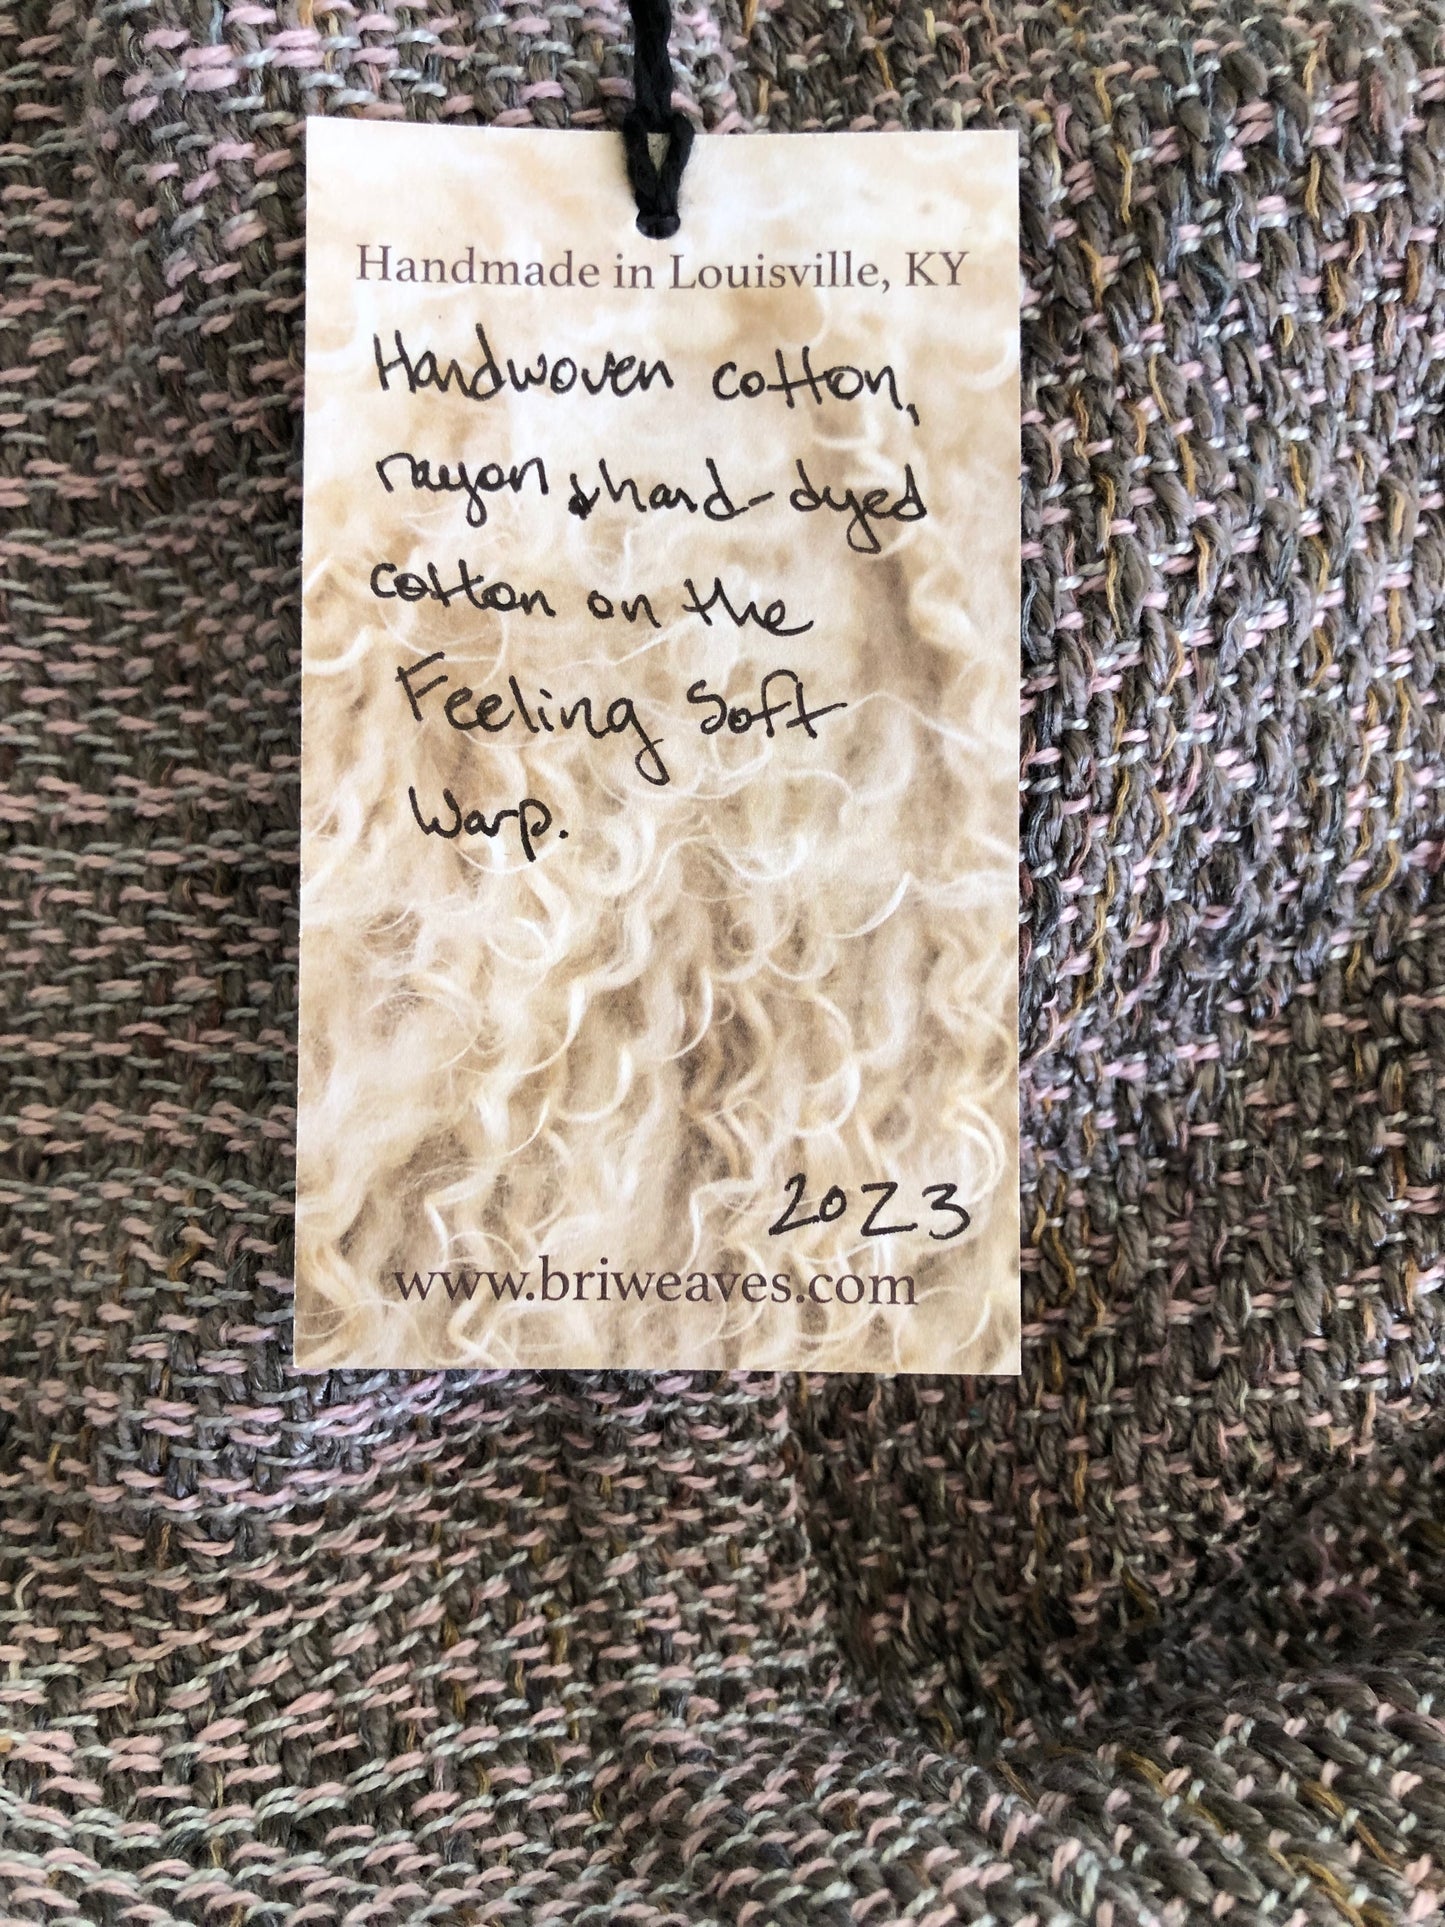 Handmade in Louisville, KY
Handwoven cotton,
rayon & hand-dyed
cotton on the
Feeling Soft
Warp.
2023
www.briweaves.com